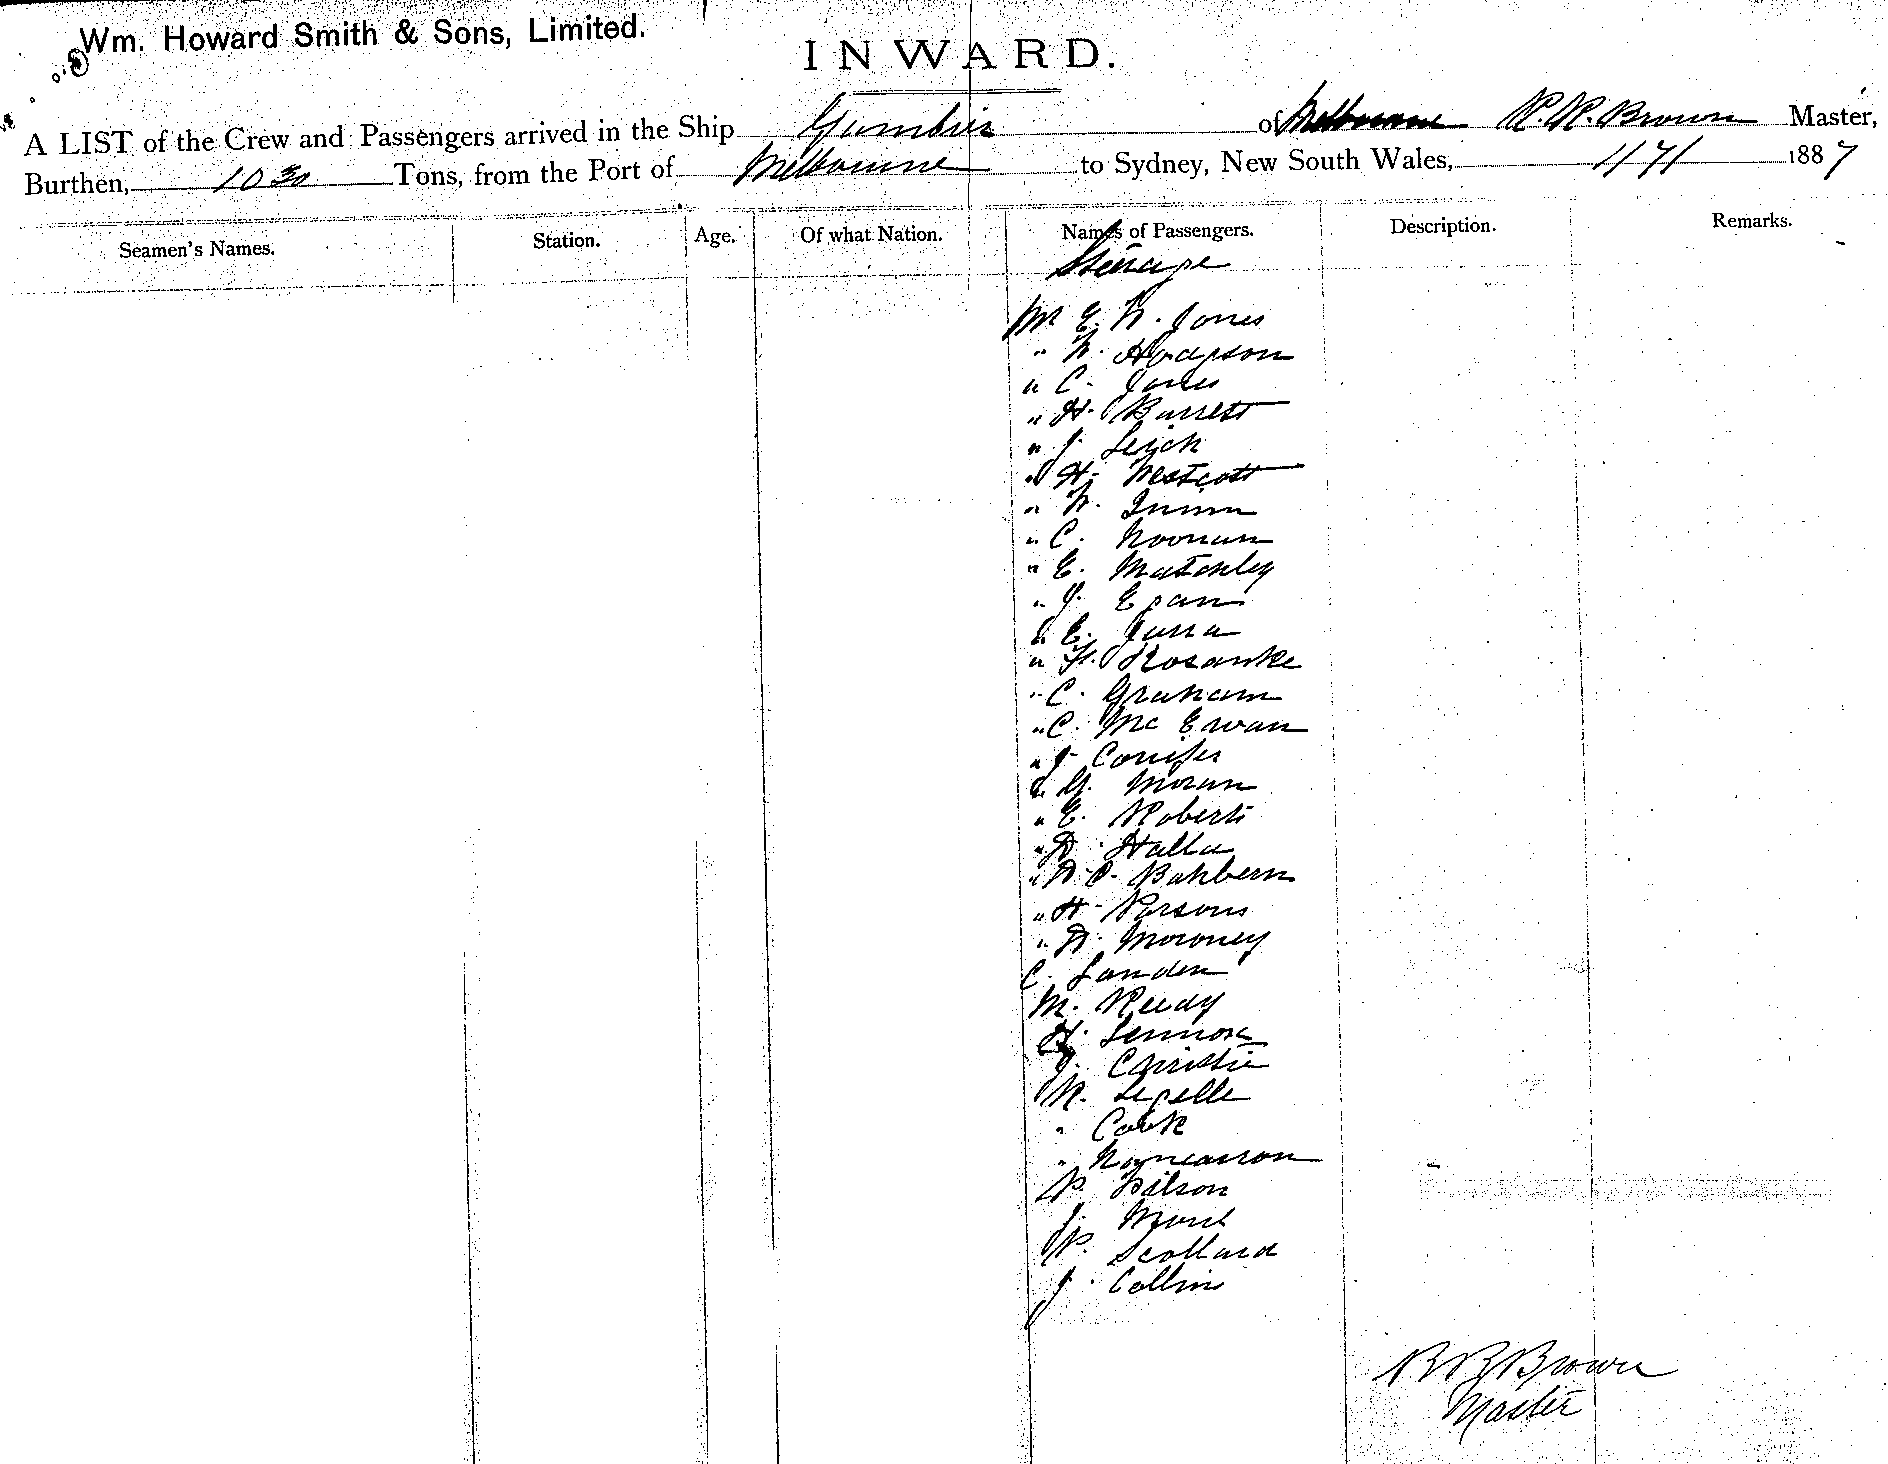 Wm. Howard Smith & Sons, Limited.
INWARD.
A LIST of the Crew and Passengers arrived in the Ship Gambier of Melbourne R. R. Brown Master,
Burthen, 1030 Tons, from the Port of Melbourne to Sydney, New South Wales, 1887
Seamen's Names. Station. Age. Of what Nation. Names of Passengers. Description. Remarks.
Steerage
Mr E. W. Jones
" W. Hodgson
" C. Jones
" H. Barrett
" J. Leich
" H. Westcott
" W.
" C. Noonan
" E. Matchley
" J. Egan
" E.
" F. Rosanke
" C. Graham
" C. Mc Ewan
" J.
" G. Moran
" E. Roberts
" D. Halla
" W. C. Bahbern
" H. Parsons
" D. Moroney
C. Landen
M. Reedy
H. Lennox
J. Christie
M. Legelle
" Cook
"
P. Pilson
J.
P. Scollard
J. Collins
R R Brown
Master